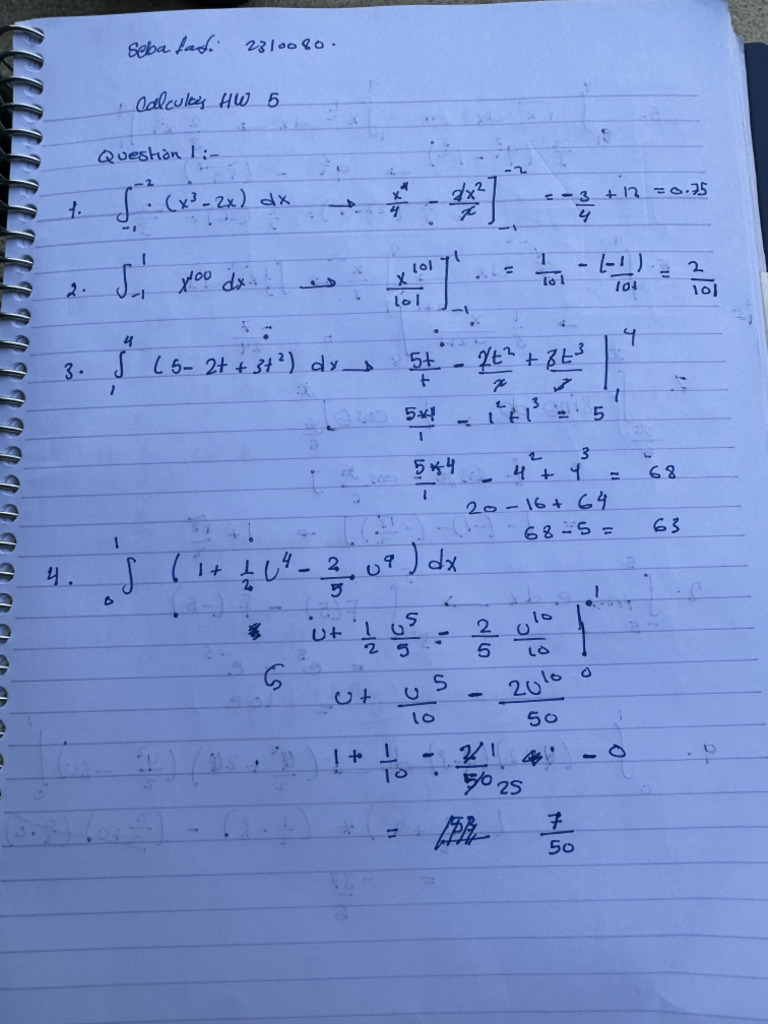 2310080.
Calculus HW 5
Question 1:-
1. ∫_{-1}^{-2} (x³ - 2x) dx → x⁴/4 - 2x²/2 ]_{-1}^{-2} = -3/4 + 12 = 0.75
2. ∫_{-1}^{1} x¹⁰⁰ dx → x¹⁰¹/101 ]_{-1}^{1} = 1/101 - (-1/101) = 2/101
3. ∫_{1}^{4} (5 - 2t + 3t²) dx → 5t/1 - 2t²/2 + 3t³/3 |_{1}^{4}
5*1/1 - 1² + 1³ = 5
5*4/1 - 4² + 4³ = 68
20 - 16 + 64
68 - 5 = 63
4. ∫_{0}^{1} (1 + 1/2 U⁴ - 2/5 U⁹) dx
U + 1/2 U⁵/5 - 2/5 U¹⁰/10 |_{0}^{1}
U + U⁵/10 - 2U¹⁰/50
1 + 1/10 - 2/50 1/25 - 0
= 7/50